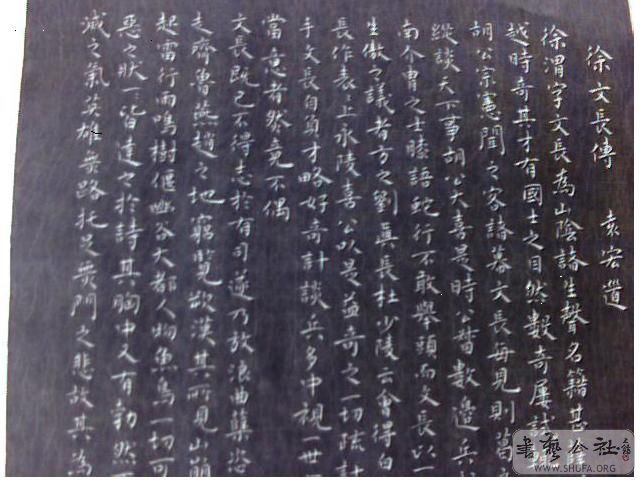 徐文長傳 袁宏道
徐渭字文長為山陰諸生聲名籍甚薛
越時奇其才有國士之目然數奇屢試輒
胡公宗憲聞之客諸幕文長每見則葛
縱談天下事胡公大喜是時公督數邊兵
南介胄之士膝語蛇行不敢舉頭而文長以一
生傲之議者方之劉真長杜少陵云會得白
長作表上永陵喜公以是益奇之一切疏計
手文長自負才略好奇計談兵多中視一世
當意者然竟不偶
文長既已不得志於有司遂乃放浪曲蘗恣
走齊魯燕趙之地窮覽朔漠其所見山崩
起雷行雨鳴樹偃幽谷大都人物魚鳥一切可
惡之狀一皆達之於詩其胸中又有勃然
滅之氣英雄無路托足無門之悲故其為
書藝公社
WWW.SHUFA.ORG